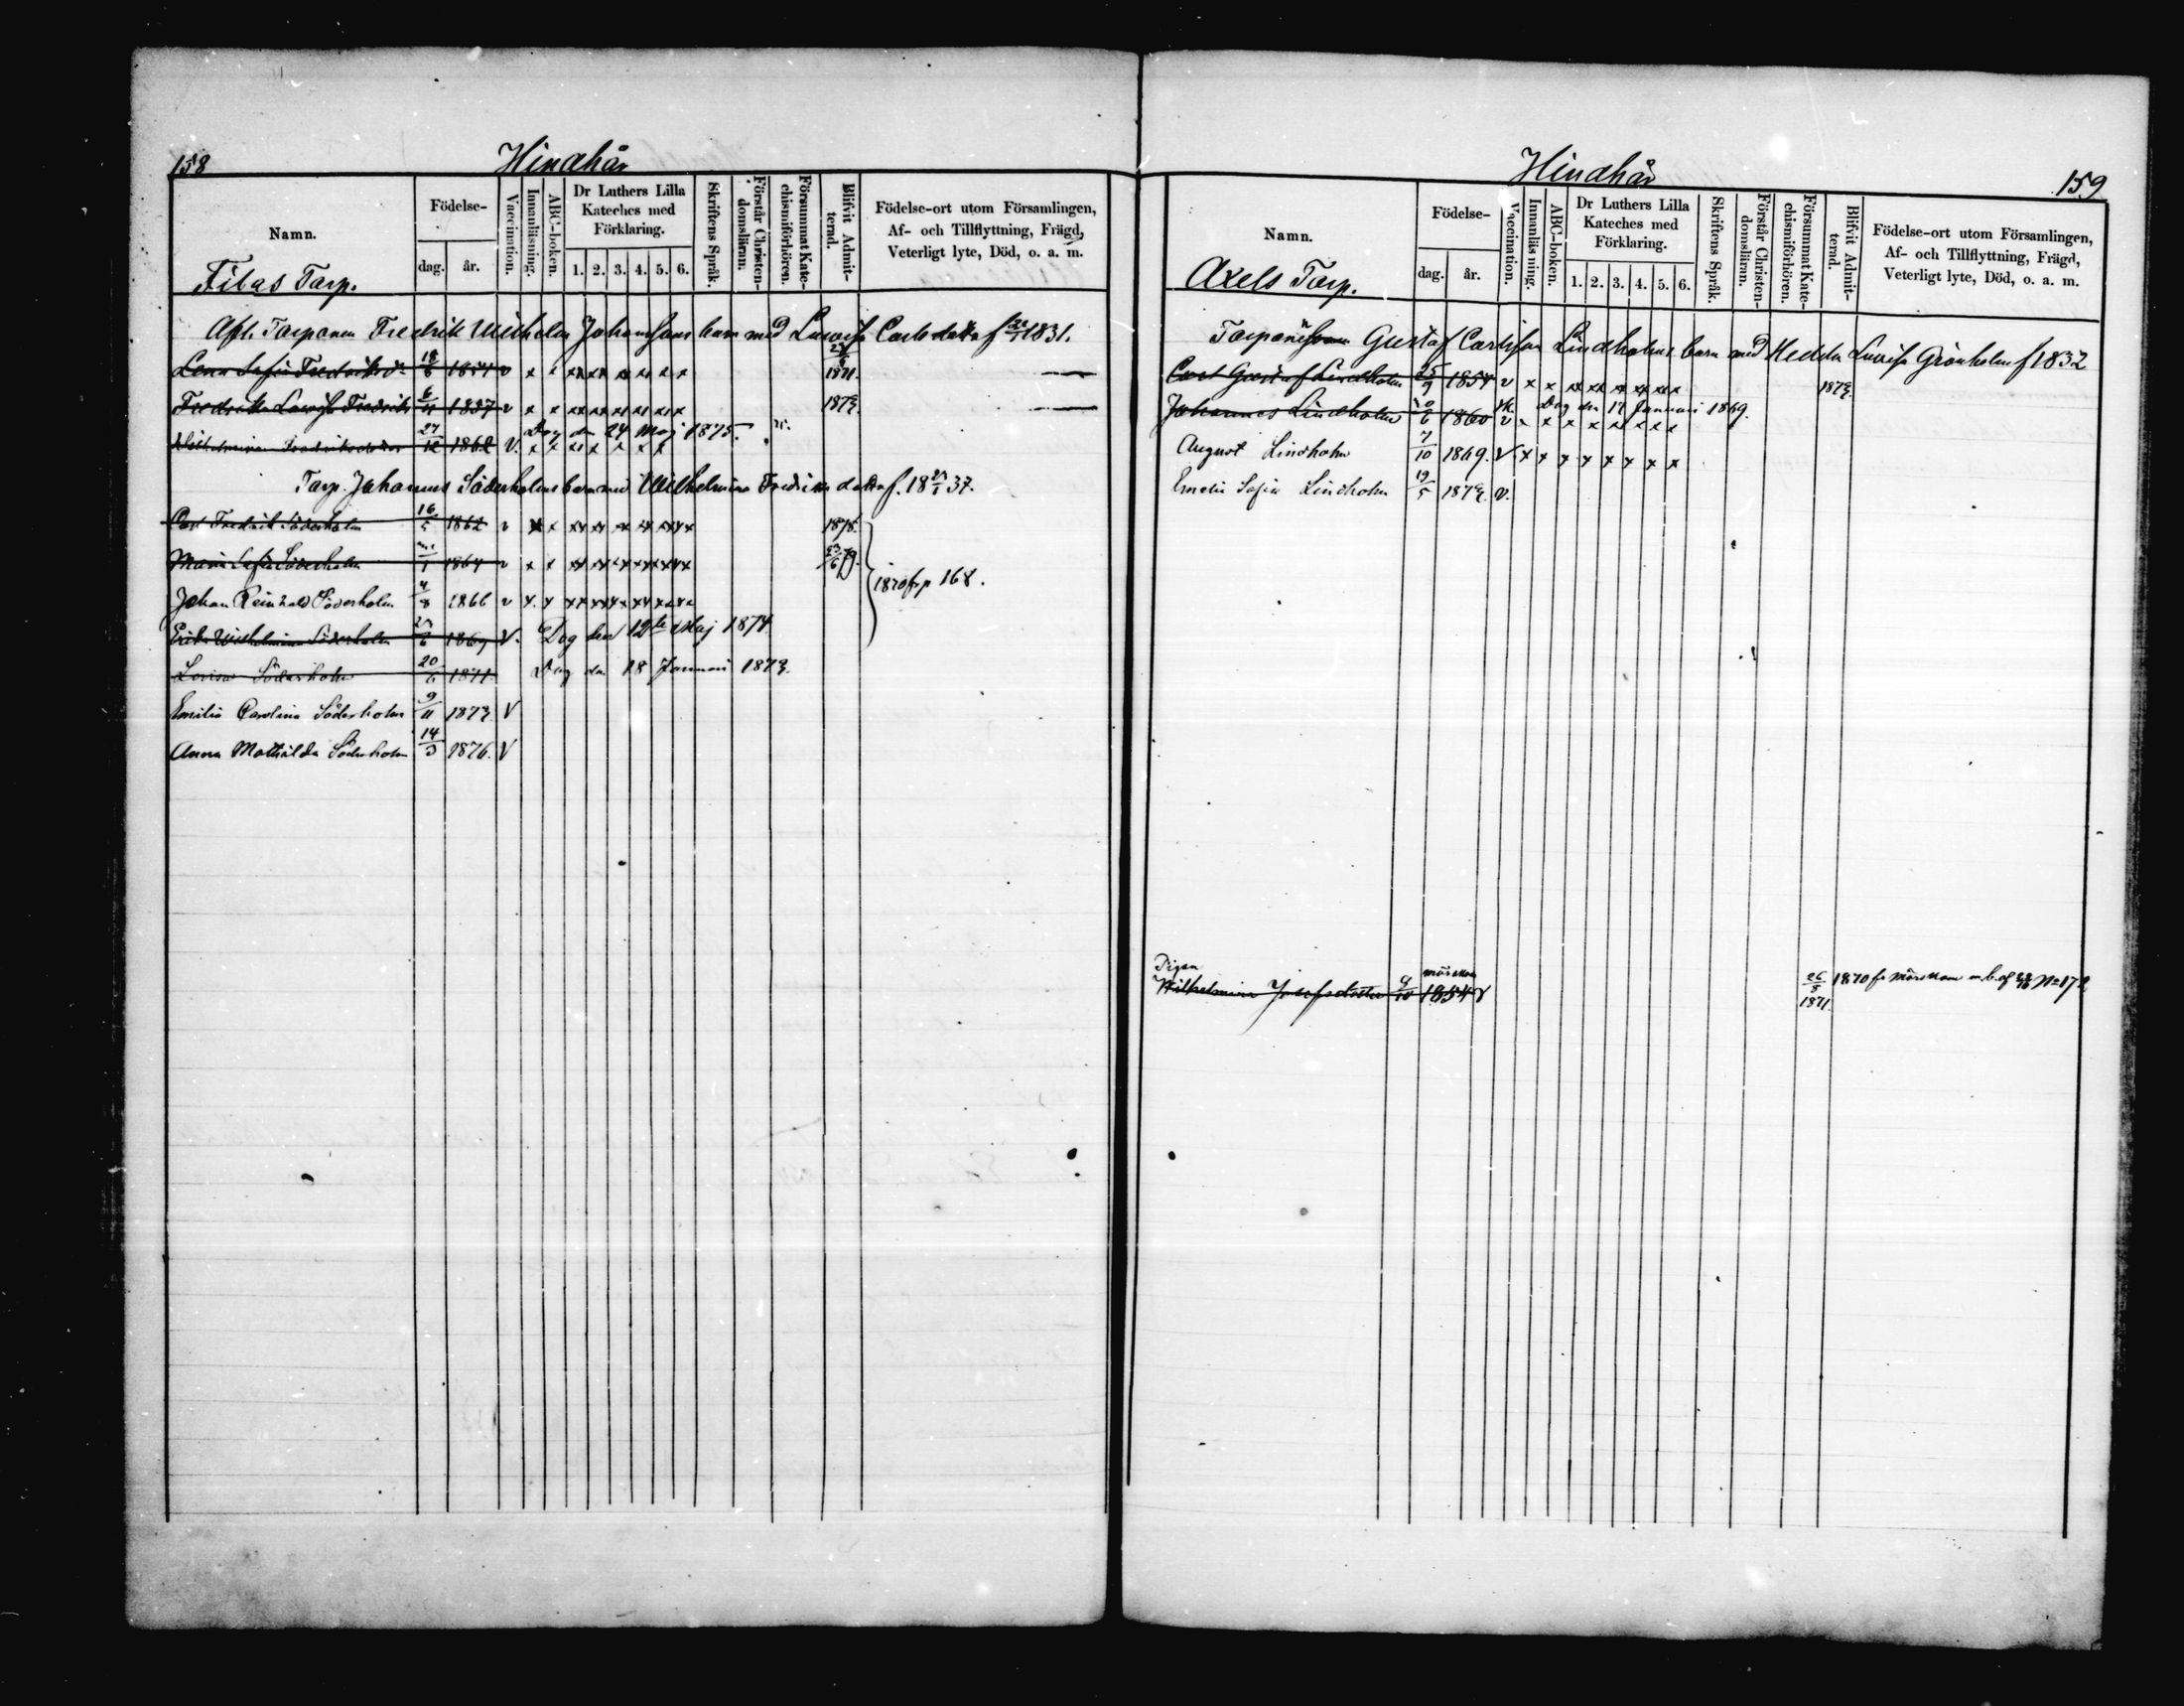 158
Hindhår
Namn.
Födelse-
dag.
år.
Vaccination.
Innanläsning.
ABC-boken.
Dr Luthers Lilla
Kateches med
Förklaring.
1. 2. 3. 4. 5. 6.
Skriftens Språk.
Förstår Christen-
domsläran.
Försummat Kate-
chismiförhören.
Blifvit Admit-
terad.
Födelse-ort utom Församlingen,
Af- och Tillflyttning, Frägd,
Veterligt lyte, Död, o. a. m.
Torp.
Torparen Fredrik Wilhelm Johanssons barn med Lovisa Carlsdotter f 1831.
Lena Sofia Fredriksdr 18/6 v x x xx xx xx xx x x 1871.
Fredrika Lovisa Fredriks 1857 v x x xx xx xx xx x x 1873.
Dog den 24 Maj 1875.
Wilhelmina Fredriksdotter 27/12 1862 V. x x xx x x x x
Torp. Johannes Söderholms barn med Wilhelmina Fredriksdotter f. 1837.
Carl Fredrik Söderholm 16/5 1862 v x x xx xx xx xx xx xx 1878.
Maria Sofia Söderholm 1864 v x x xx xx xx xx xx xx 79.
1870 fr p 168.
Johan Reinhold Söderholm 4/8 1866 v x x xx xx xx xx xx xx
Erika Wilhelmina Söderholm 1869 V. Dog den 12te Maj 1874.
Lovisa Söderholm 20/6 1871 Dog den 18 Januari 1873.
Emilia Carolina Söderholm 9/11 1873 V
Anna Mathilda Söderholm 14/3 1876. V
Hindhår
159
Namn.
Födelse-
dag.
år.
Vaccination.
Innanläs ning.
ABC-boken.
Dr Luthers Lilla
Kateches med
Förklaring.
1. 2. 3. 4. 5. 6.
Skriftens Språk.
Förstår Christen-
domsläran.
Försummat Kate-
chismiförhören.
Blifvit Admit-
terad.
Födelse-ort utom Församlingen,
Af- och Tillflyttning, Frägd,
Veterligt lyte, Död, o. a. m.
Axels Torp.
Gustaf Carlsson Lindholms barn med Hedda Lovisa Grönholm f 1832
Carl Gustaf Lindholm 25/9 1854 v x x xx xx xx xx xx 1873.
Dog den 17 Januari 1869.
Johannes Lindholm 20/6 1860 v x x x x x x x x
August Lindholm 7/10 1869. V x x x x x x x x
Emelie Sofia Lindholm 19/5 1873. v.
Pigan
Wilhelmina Josefsdotter 9/10 Mörskom 1854 v
26/8 1871
1870 fr Mörskom m. b. af No 172